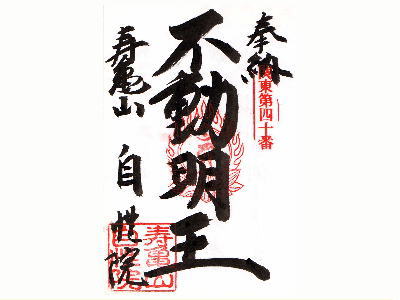 奉納
関東第四十番
不動明王
寿亀山
自性院
寿亀山
自性院